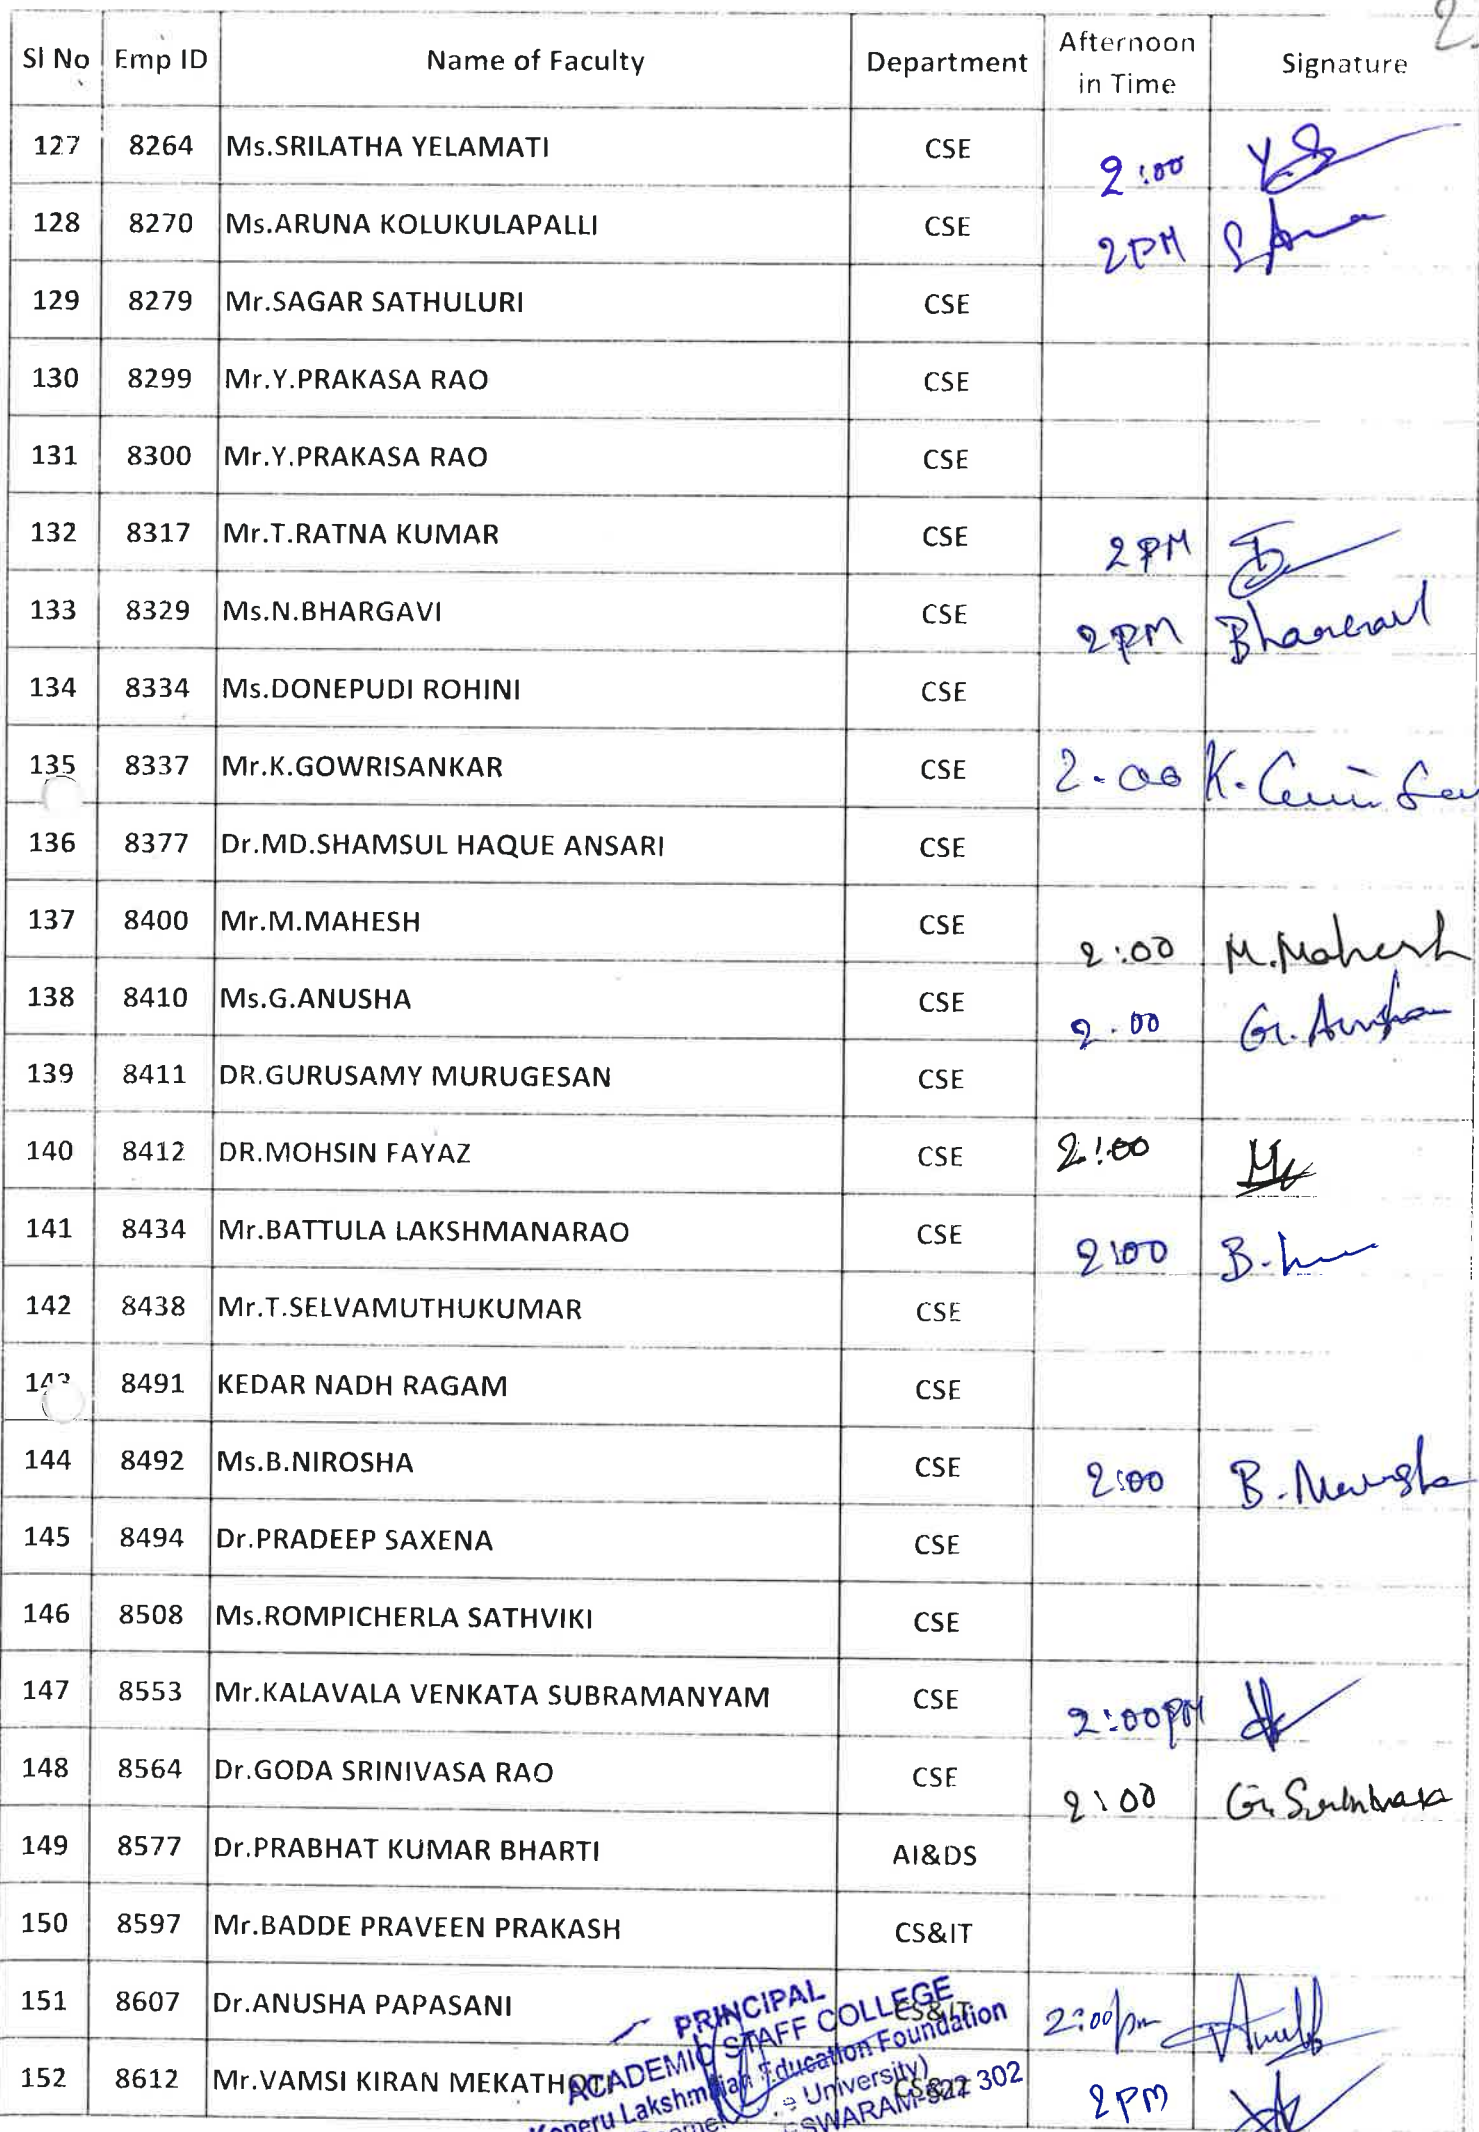 2
Sl No Emp ID Name of Faculty Department Afternoon in Time Signature
127 8264 Ms.SRILATHA YELAMATI CSE 2:00
128 8270 Ms.ARUNA KOLUKULAPALLI CSE 2PM
129 8279 Mr.SAGAR SATHULURI CSE
130 8299 Mr.Y.PRAKASA RAO CSE
131 8300 Mr.Y.PRAKASA RAO CSE
132 8317 Mr.T.RATNA KUMAR CSE 2PM
133 8329 Ms.N.BHARGAVI CSE 2PM
134 8334 Ms.DONEPUDI ROHINI CSE
135 8337 Mr.K.GOWRISANKAR CSE 2.00 K.
136 8377 Dr.MD.SHAMSUL HAQUE ANSARI CSE
137 8400 Mr.M.MAHESH CSE 2:00 M.Mahesh
138 8410 Ms.G.ANUSHA CSE 2.00 G.Anusha
139 8411 DR.GURUSAMY MURUGESAN CSE
140 8412 DR.MOHSIN FAYAZ CSE 2:00
141 8434 Mr.BATTULA LAKSHMANARAO CSE 2:00 B.
142 8438 Mr.T.SELVAMUTHUKUMAR CSE
143 8491 KEDAR NADH RAGAM CSE
144 8492 Ms.B.NIROSHA CSE 2:00 B.
145 8494 Dr.PRADEEP SAXENA CSE
146 8508 Ms.ROMPICHERLA SATHVIKI CSE
147 8553 Mr.KALAVALA VENKATA SUBRAMANYAM CSE 2:00PM
148 8564 Dr.GODA SRINIVASA RAO CSE 2:00 G.
149 8577 Dr.PRABHAT KUMAR BHARTI AI&DS
150 8597 Mr.BADDE PRAVEEN PRAKASH CS&IT
151 8607 Dr.ANUSHA PAPASANI CS&IT 2:00pm
152 8612 Mr.VAMSI KIRAN MEKATHOTI CS&IT 2PM
PRINCIPAL
ACADEMIC STAFF COLLEGE
Koneru Lakshmaiah Education Foundation
University)
522 302